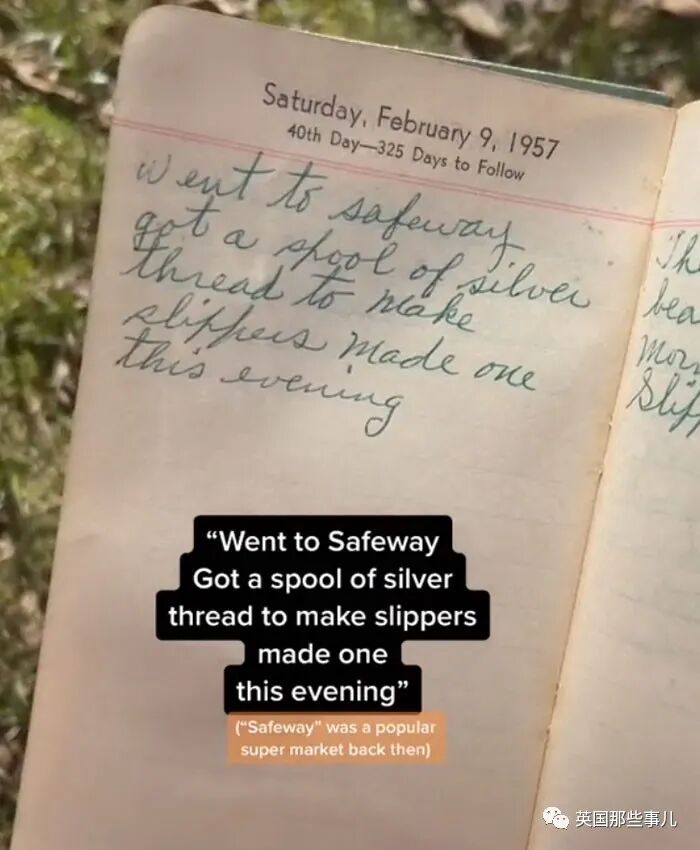 Saturday, February 9, 1957
40th Day—325 Days to Follow
Went to safeway
got a spool of silver
thread to make
slippers made one
this evening
Th
bea
Mor
Slip
“Went to Safeway
Got a spool of silver
thread to make slippers
made one
this evening”
(“Safeway” was a popular
super market back then)
英国那些事儿